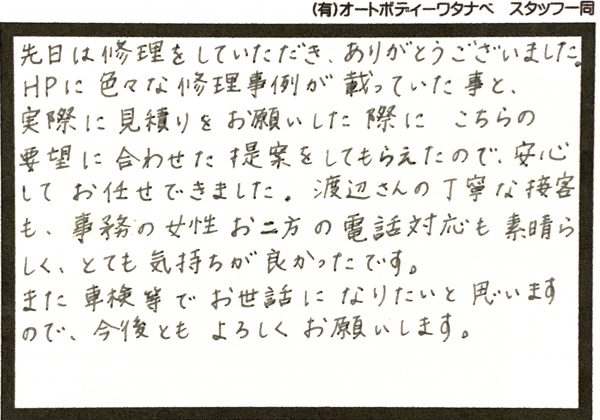 (有)オートボディーワタナベ スタッフ一同
先日は修理をしていただき、ありがとうございました。
HPに色々な修理事例が載っていた事と、
実際に見積りをお願いした際に こちらの
要望に合わせた提案をしてもらえたので、安心
して お任せできました。渡辺さんの丁寧な接客
も、事務の女性お二方の電話対応も素晴ら
しく、とても気持ちが良かったです。
また車検等でお世話になりたいと思います
ので、今後とも よろしくお願いします。